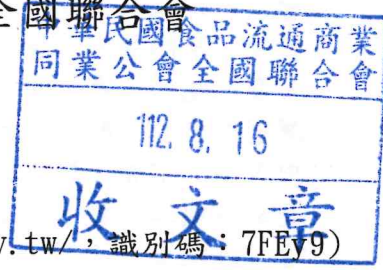 全國聯合會
中華民國食品流通商業
同業公會全國聯合會
112. 8. 16
收文章
.tw/，識別碼：7FEy9)